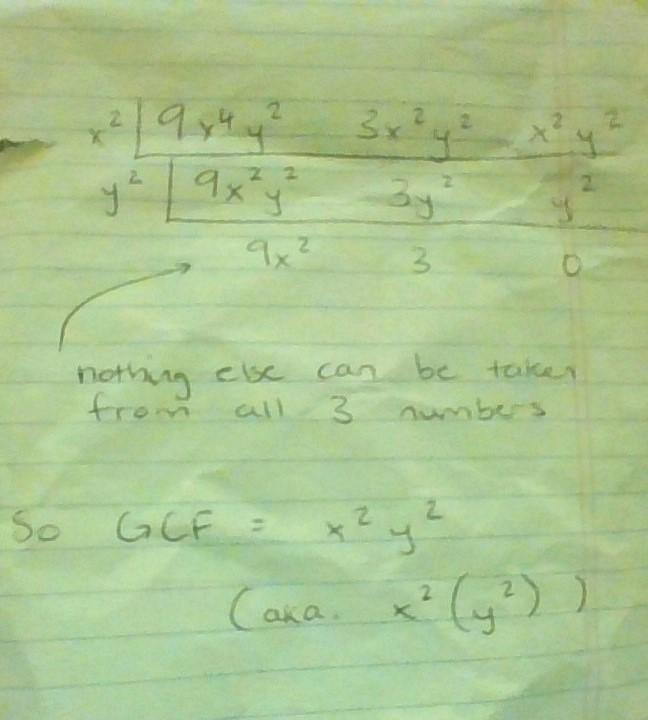 x² 9x⁴y² 3x²y² x²y²
y² 9x²y² 3y² y²
9x² 3 0
nothing else can be taken
from all 3 numbers
So GCF = x²y²
(aka. x²(y²))